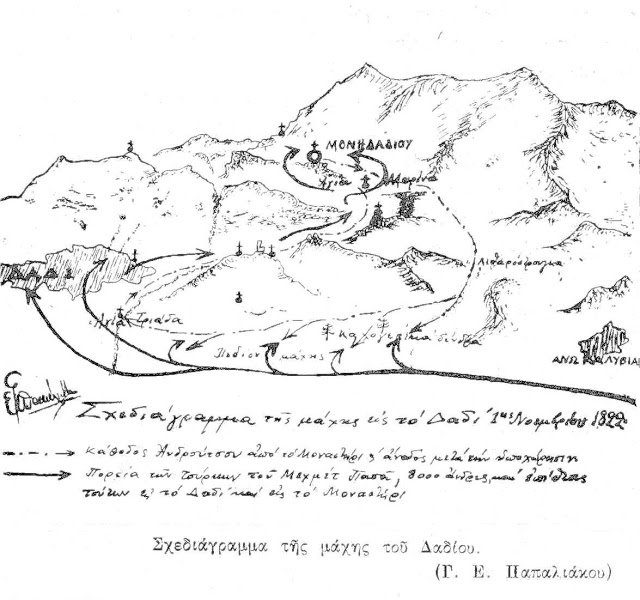 ΜΟΝΗ ΔΑΔΙΟΥ
Ἁγία Μαρίνα
ΔΑΔΙ
Ἁγία Τριάδα
Πεδίον μάχης
ΑΝΩ ΚΑΛΥΒΙΑ
Σχεδιάγραμμα τῆς μάχης εἰς τὸ Δαδὶ 1ης Νοεμβρίου 1822
κάθοδος Ἀνδρούτσου ἀπὸ τὸ Μοναστήρι ἄνοδος μετὰ τὴν ὑποχώρησιν
Πορεία τῶν τούρκων τοῦ Μεχμὲτ Πασᾶ, 8000 ἄνδρες, καὶ ἐπίθεσις
τούτων εἰς τὸ Δαδὶ καὶ εἰς τὸ Μοναστήρι
Σχεδιάγραμμα τῆς μάχης τοῦ Δαδίου.
(Γ. Ε. Παπαλιάκου)